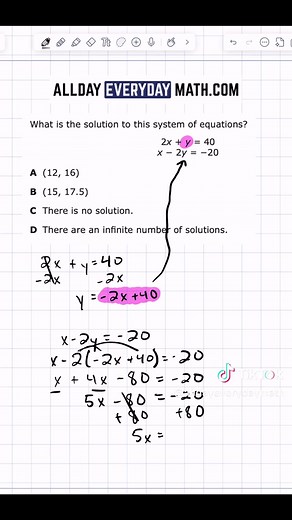 ALLDAY EVERYDAY MATH.COM
What is the solution to this system of equations?
2x + y = 40
x − 2y = −20
A (12, 16)
B (15, 17.5)
C There is no solution.
D There are an infinite number of solutions.
2x + y = 40
-2x -2x
y = -2x+40
x - 2y = -20
x - 2(-2x+40) = -20
x + 4x - 80 = -20
5x - 80 = -20
+80 +80
5x =